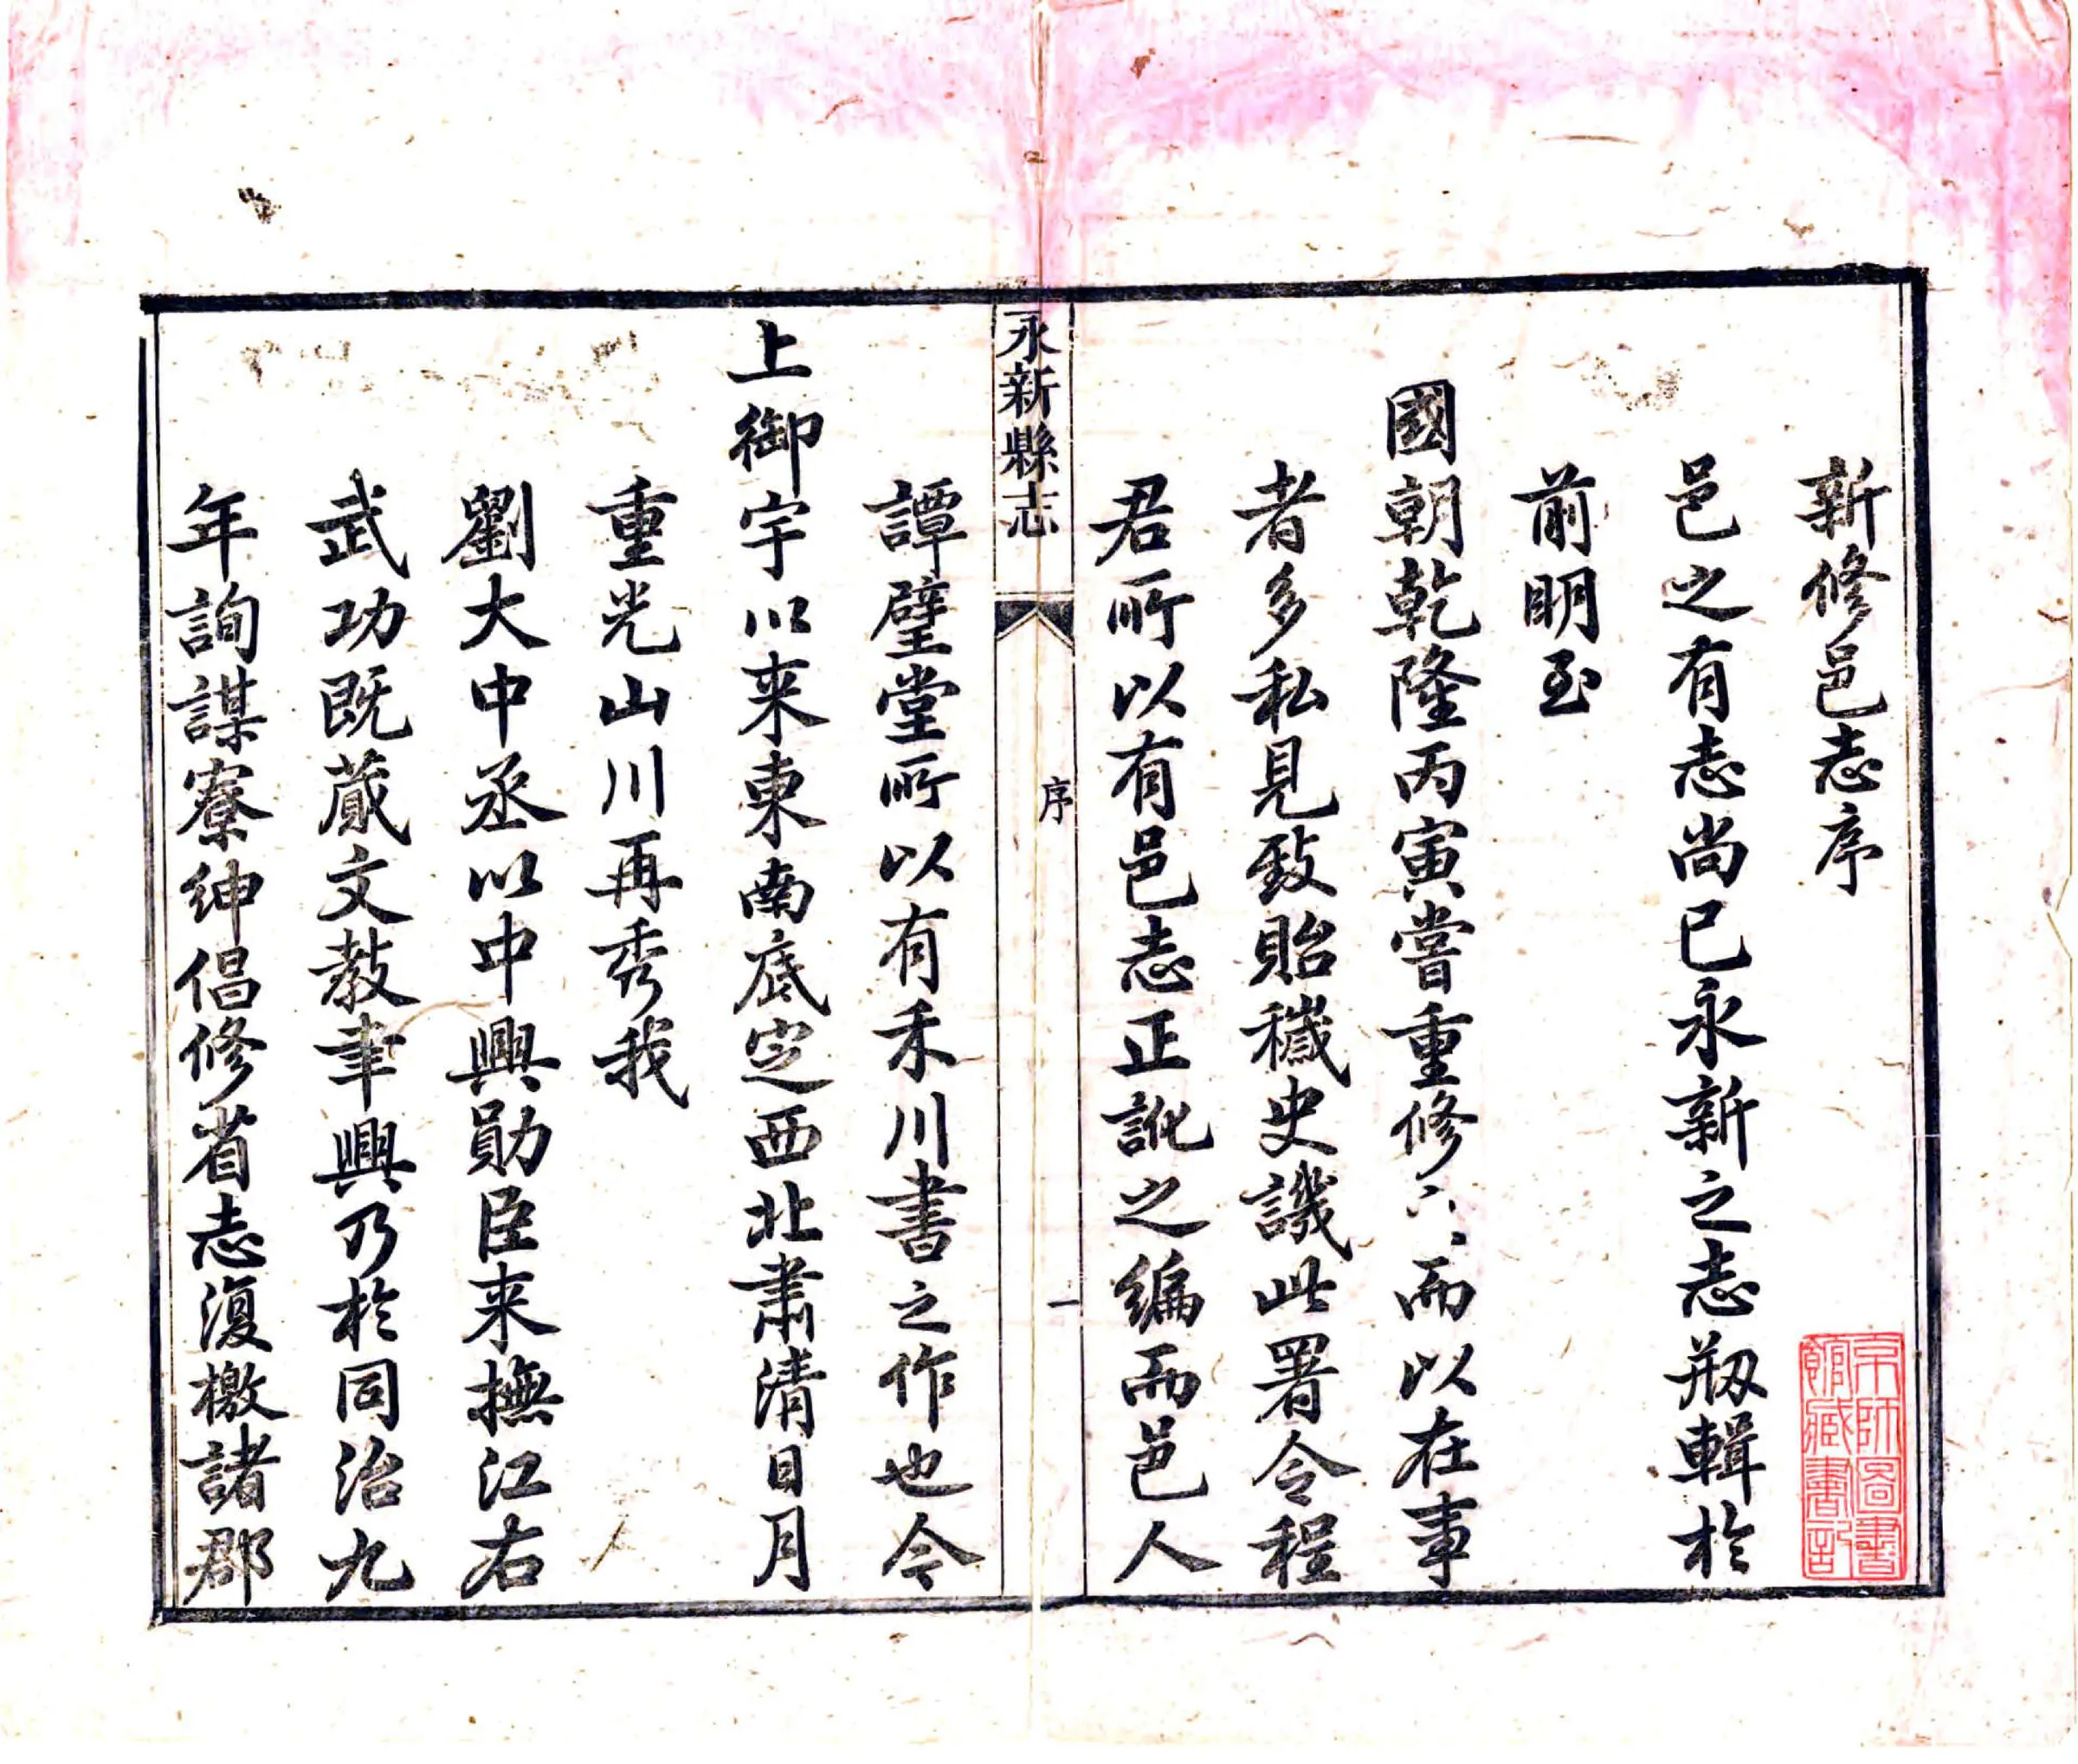 新修邑志序
邑之有志尚已永新之志剏輯於
前明至
國朝乾隆丙寅嘗重修之而以在事
者多私見致貽穢史譏此署令程
君所以有邑志正訛之編而邑人
永新縣志
序
一
譚璧堂所以有禾川書之作也今
上御宇以来東南底定西北肅清日月
重光山川再秀我
劉大中丞以中興勛臣来撫江右
武功既蕆文教聿興乃於同治九
年詢謀寮紳倡修省志復檄諸郡
京師圖書
館藏書記